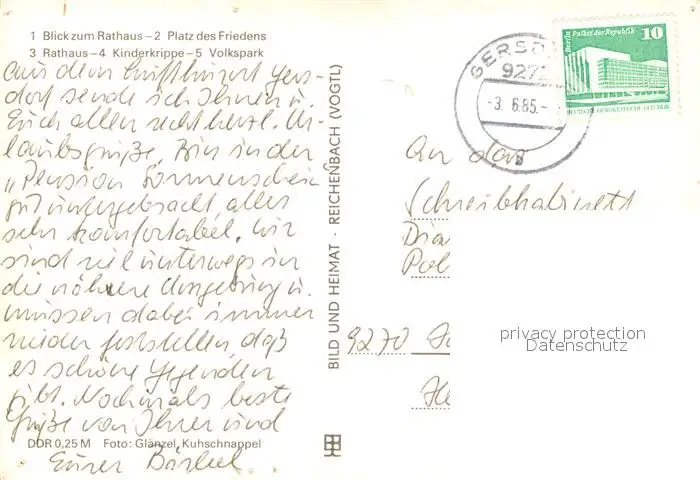 1 Blick zum Rathaus – 2 Platz des Friedens
3 Rathaus – 4 Kinderkrippe – 5 Volkspark
Aus dem Luftkurort Gers-
dorf sende ich Ihnen u.
Euch allen recht herzl. Ur-
laubsgrüße. Bin in der
„Pension Sonnenschein
gut untergebracht, alles
sehr komfortabel. Wir
sind viel unterwegs in
die nähere Umgebung u.
müssen dabei immer
wieder feststellen, daß
es schöne Gegenden
gibt. Nochmals beste
Grüße von Ihrer und
Eurer Bärbel.
DDR 0,25 M Foto: Glänzel, Kuhschnappel
BILD UND HEIMAT · REICHENBACH (VOGTL)
GERSD
927
-3.6.85.-
Berlin Palast der Republik
10
DEUTSCHE DEMOKRATISCHE REPUBLIK
An das
Schreibkabinett
Dia
Pol
9270
privacy protection
Datenschutz